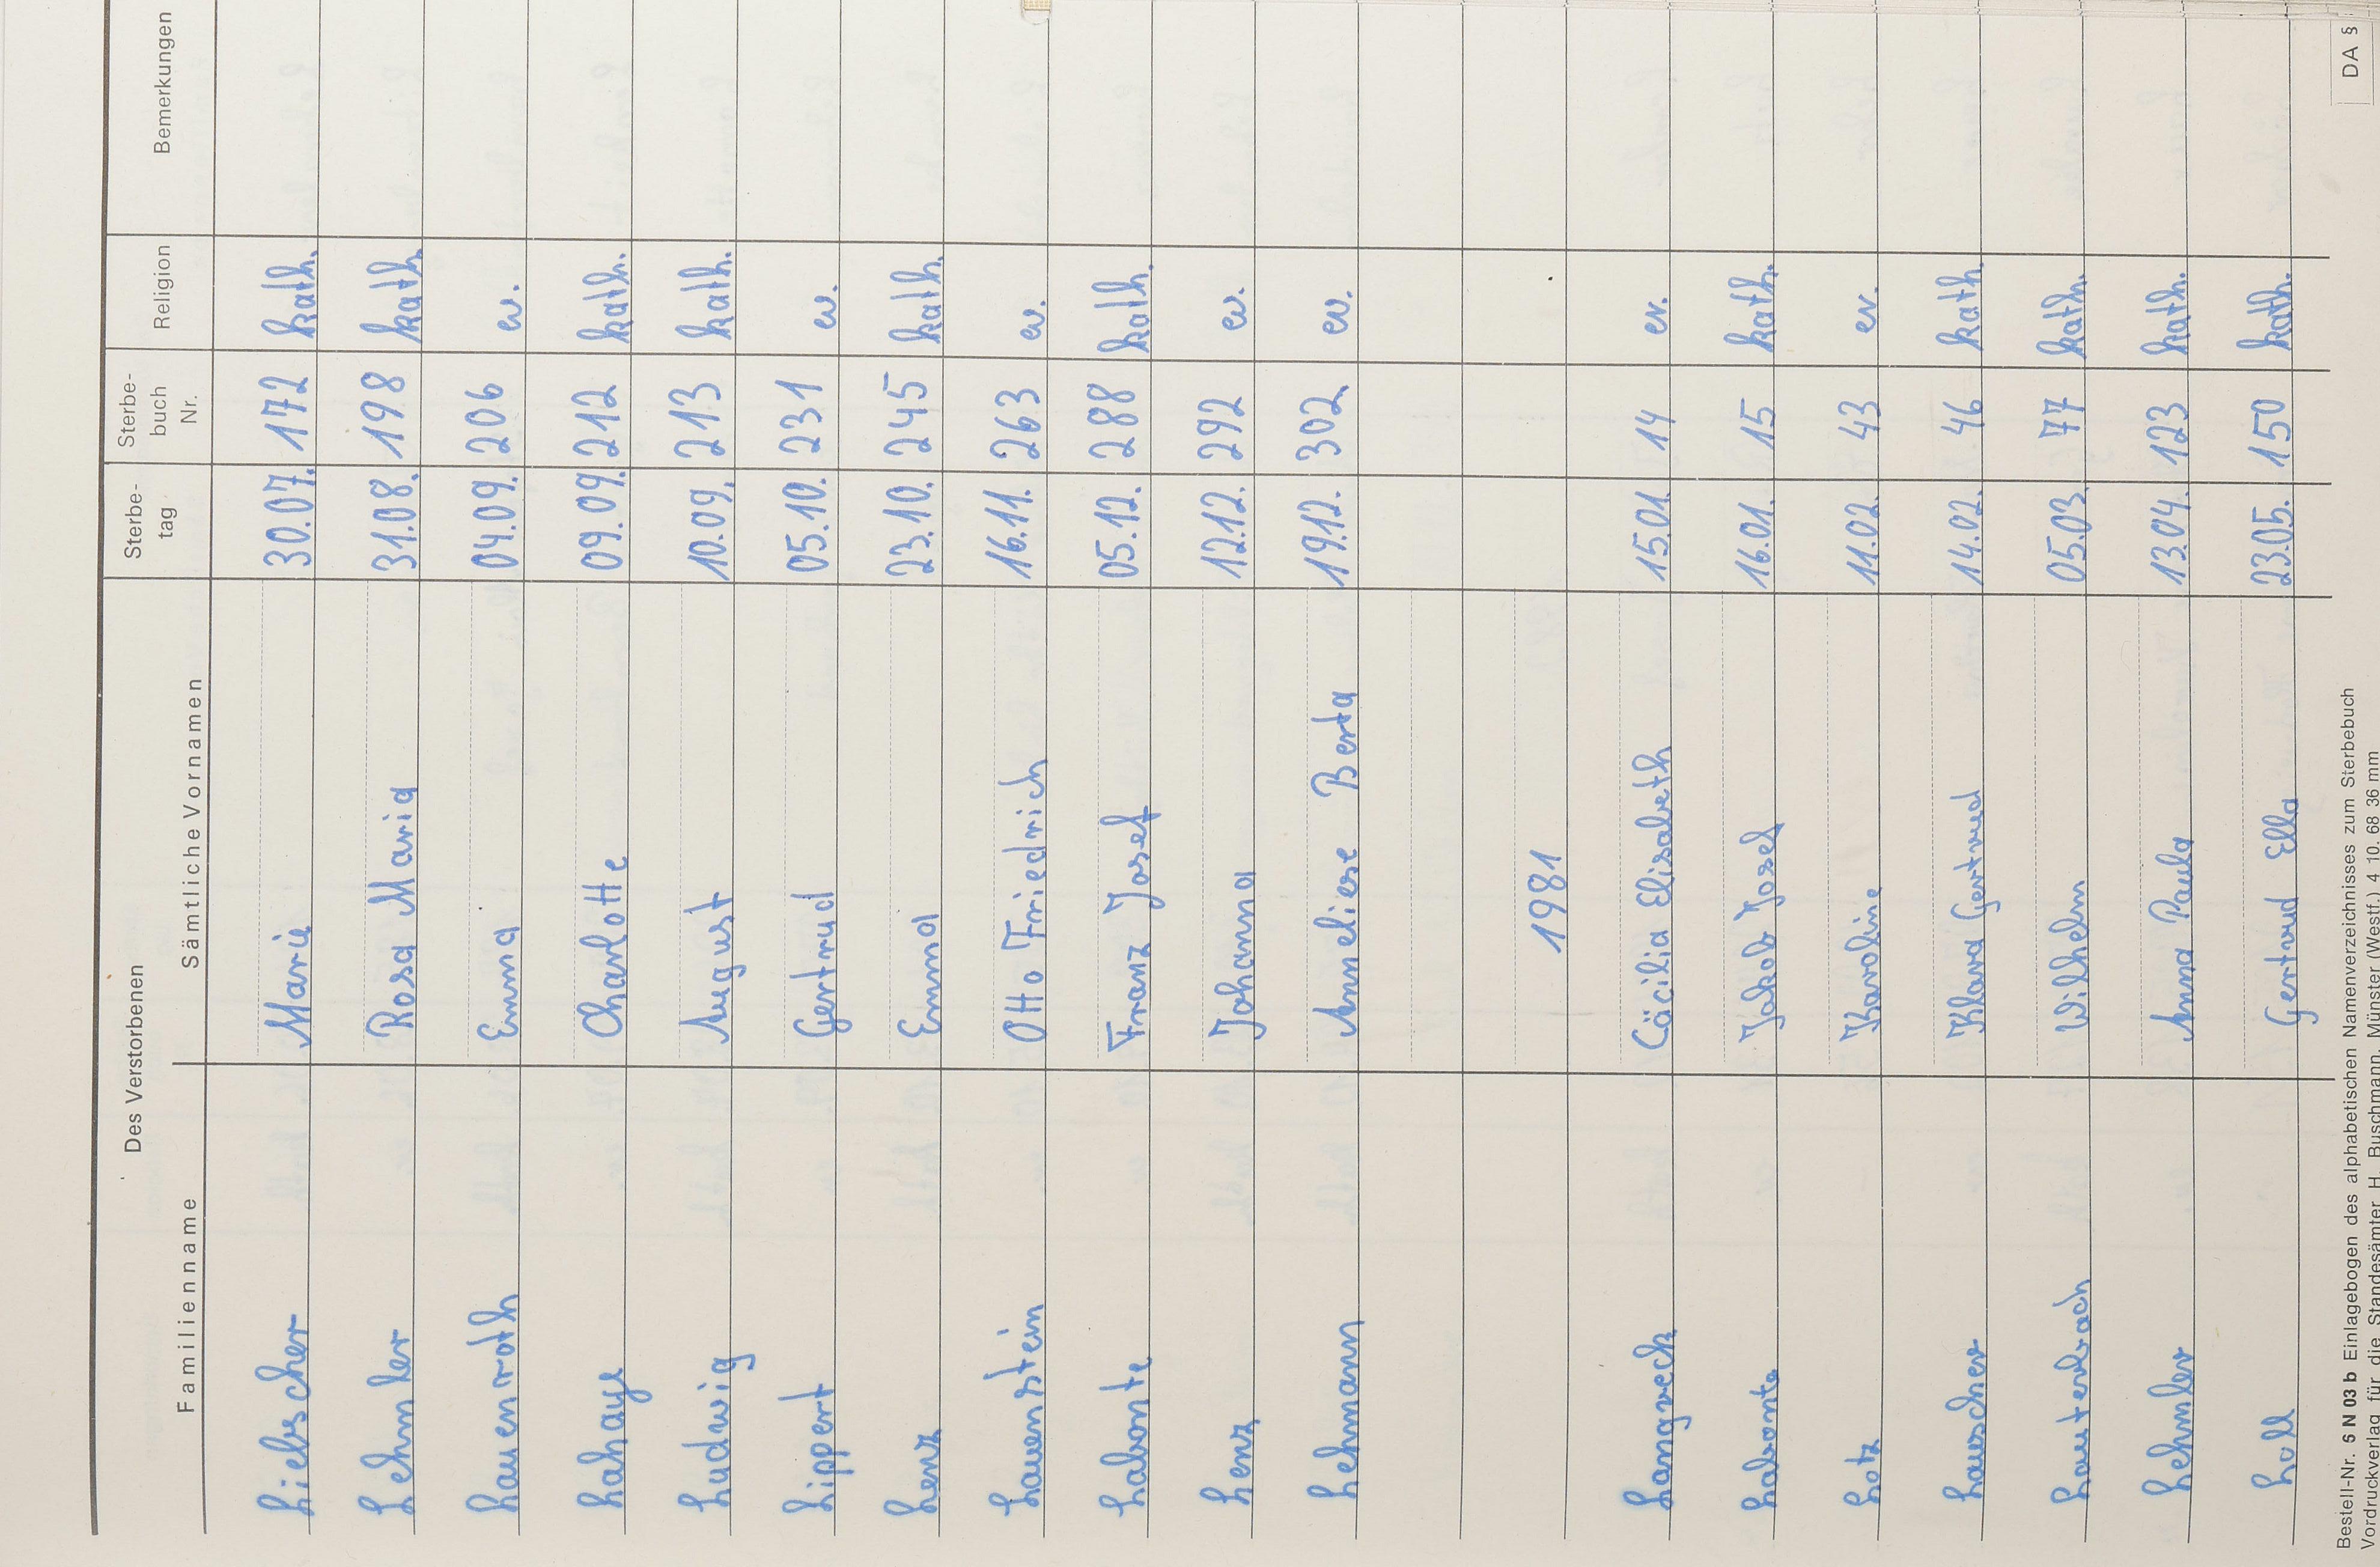 Des Verstorbenen
Familienname Sämtliche Vornamen Sterbe-tag Sterbe-buch Nr. Religion Bemerkungen
Liebscher Marie 30.07. 172 kath.
Lehmler Rosa Maria 31.08. 198 kath.
Lauenroth Emma 04.09. 206 ev.
Lahaye Charlotte 09.09. 212 kath.
Ludwig August 10.09. 213 kath.
Lippert Gertrud 05.10. 231 ev.
Lenz Emma 23.10. 245 kath.
Lauenstein Otto Friedrich 16.11. 263 ev.
Labonte Franz Josef 05.12. 288 kath.
Lenz Johanna 12.12. 292 ev.
Lehmann Anneliese Berta 19.12. 302 ev.
1981
Langreck Cäcilia Elisabeth 15.01. 14 ev.
Labonte Jakob Josef 16.01. 15 kath.
Lotz Karoline 11.02. 43 ev.
Lauscher Klara Gertrud 14.02. 46 kath.
Lauterbach Wilhelm 05.03. 77 kath.
Lehmler Anna Paula 13.04. 123 kath.
Loll Gertrud Ella 23.05. 150 kath.
Bestell-Nr. 5 N 03 b Einlagebogen des alphabetischen Namenverzeichnisses zum Sterbebuch DA §
Vordruckverlag für die Standesämter H. Buschmann, Münster (Westf.) 4 10. 68 36 mm